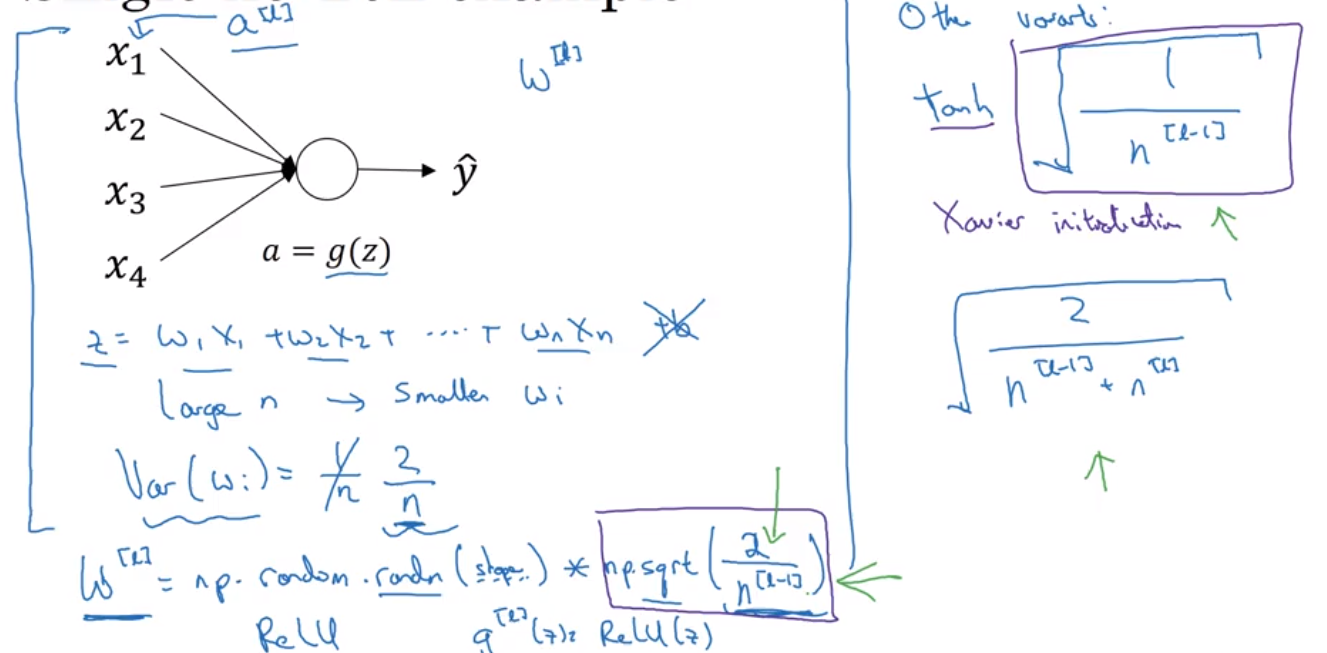 x₁ a^[l]
x₂
x₃
x₄
ŷ
a = g(z)
w^[l]
z = w₁x₁ + w₂x₂ + ····· + wₙxₙ +b
Large n → Smaller wᵢ
Var(wᵢ) = 1/n 2/n
W^[l] = np.random.randn(shape) * np.sqrt(2/n^[l-1])
ReLU g^[l](z) = ReLU(z)
Other
tanh √(1/n^[l-1])
Xavier
√(2/(n^[l-1] + n^[l]))